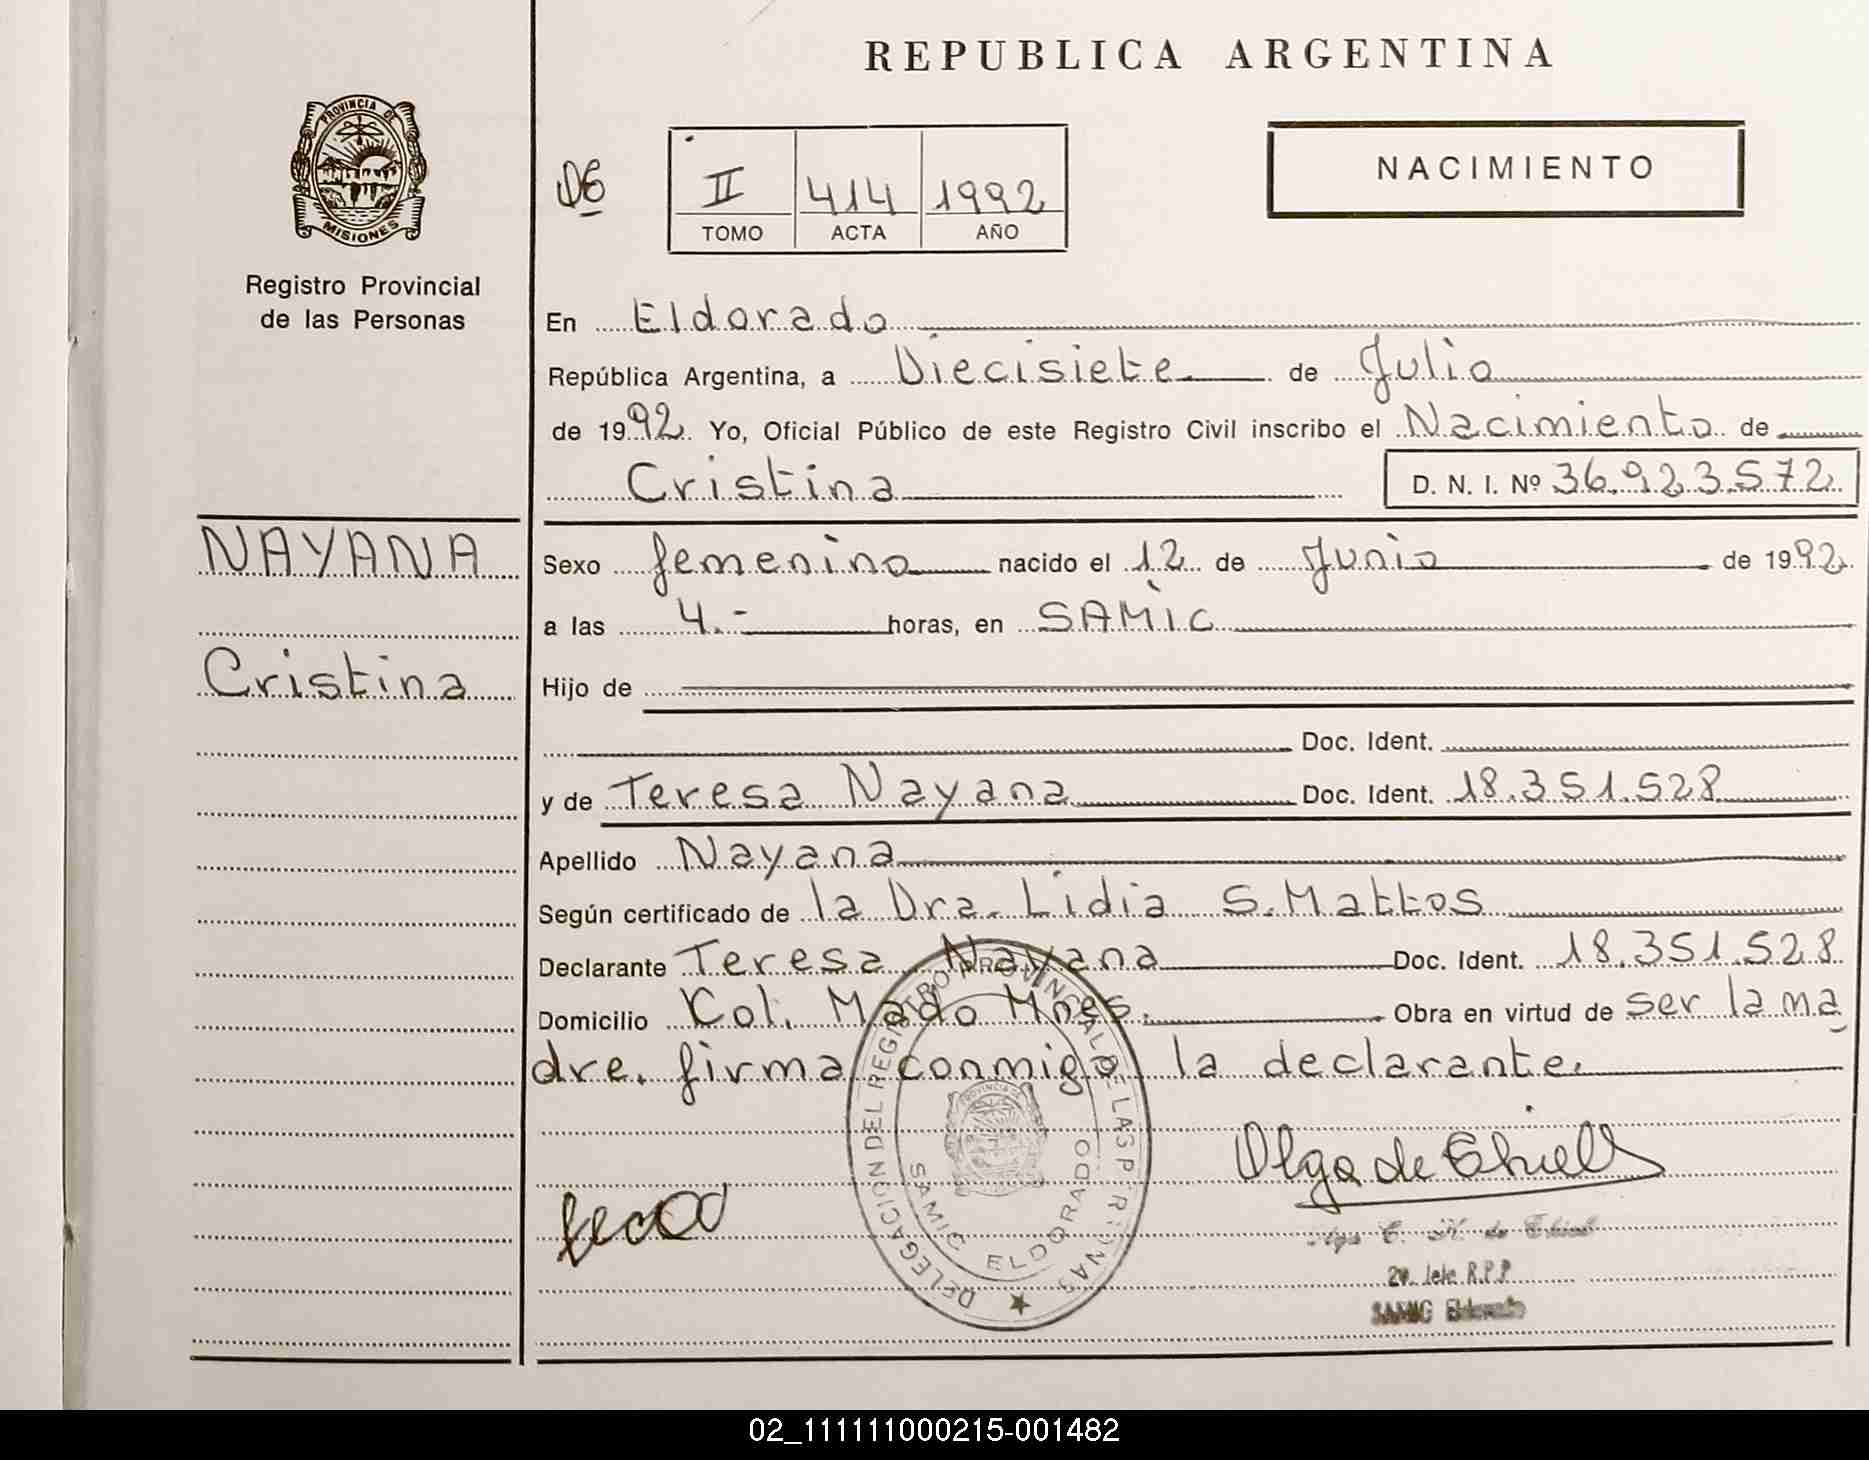 REPUBLICA ARGENTINA
PROVINCIA DE
MISIONES
Registro Provincial
de las Personas
II 414 1992
TOMO ACTA AÑO
NACIMIENTO
En Eldorado
República Argentina, a Diecisiete de Julio
de 1992 Yo, Oficial Público de este Registro Civil inscribo el Nacimiento de
Cristina D. N. I. Nº 36.923.572
NAYANA
Cristina
Sexo femenino nacido el 12 de Junio de 1992
a las 4.- horas, en SAMIC
Hijo de
Doc. Ident.
y de Teresa Nayana Doc. Ident. 18.351.528
Apellido Nayana
Según certificado de la Dra. Lidia S. Mattos
Declarante Teresa Nayana Doc. Ident. 18.351.528
Domicilio Col. Mado Mnes. Obra en virtud de ser la ma
dre. firma conmigo la declarante.
DELEGACION DEL REGISTRO PROVINCIAL DE LAS PERSONAS
SAMIC ELDORADO
Olga de
de
Jefe R.P.P
SAMIC Eldorado
02_111111000215-001482